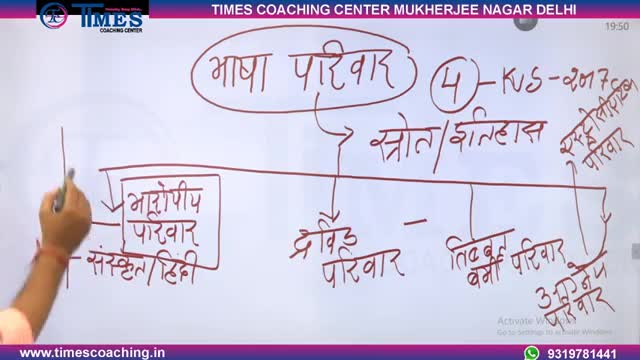 Nurturing Young Minds
TIMES
COACHING CENTER
TIMES COACHING CENTER MUKHERJEE NAGAR DELHI
19:50
भाषा परिवार
4 - KVS - 2017
स्त्रोत/इतिहास
परिवार
भारोपीय
परिवार
संस्कृत/हिंदी
द्रविड़
परिवार
तिब्बत
बर्मी परिवार
आग्नेय
परिवार
Activate Windows
Go to Settings to activate Windows.
www.timescoaching.in
9319781441